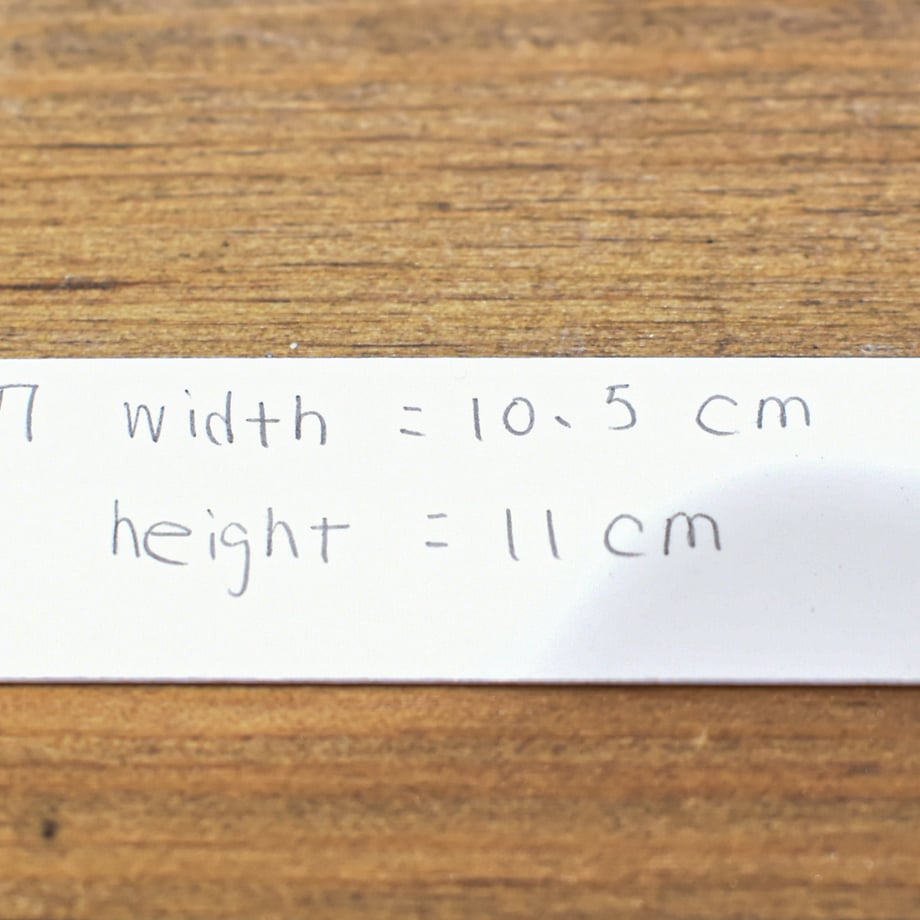 width = 10.5 cm
height = 11 cm